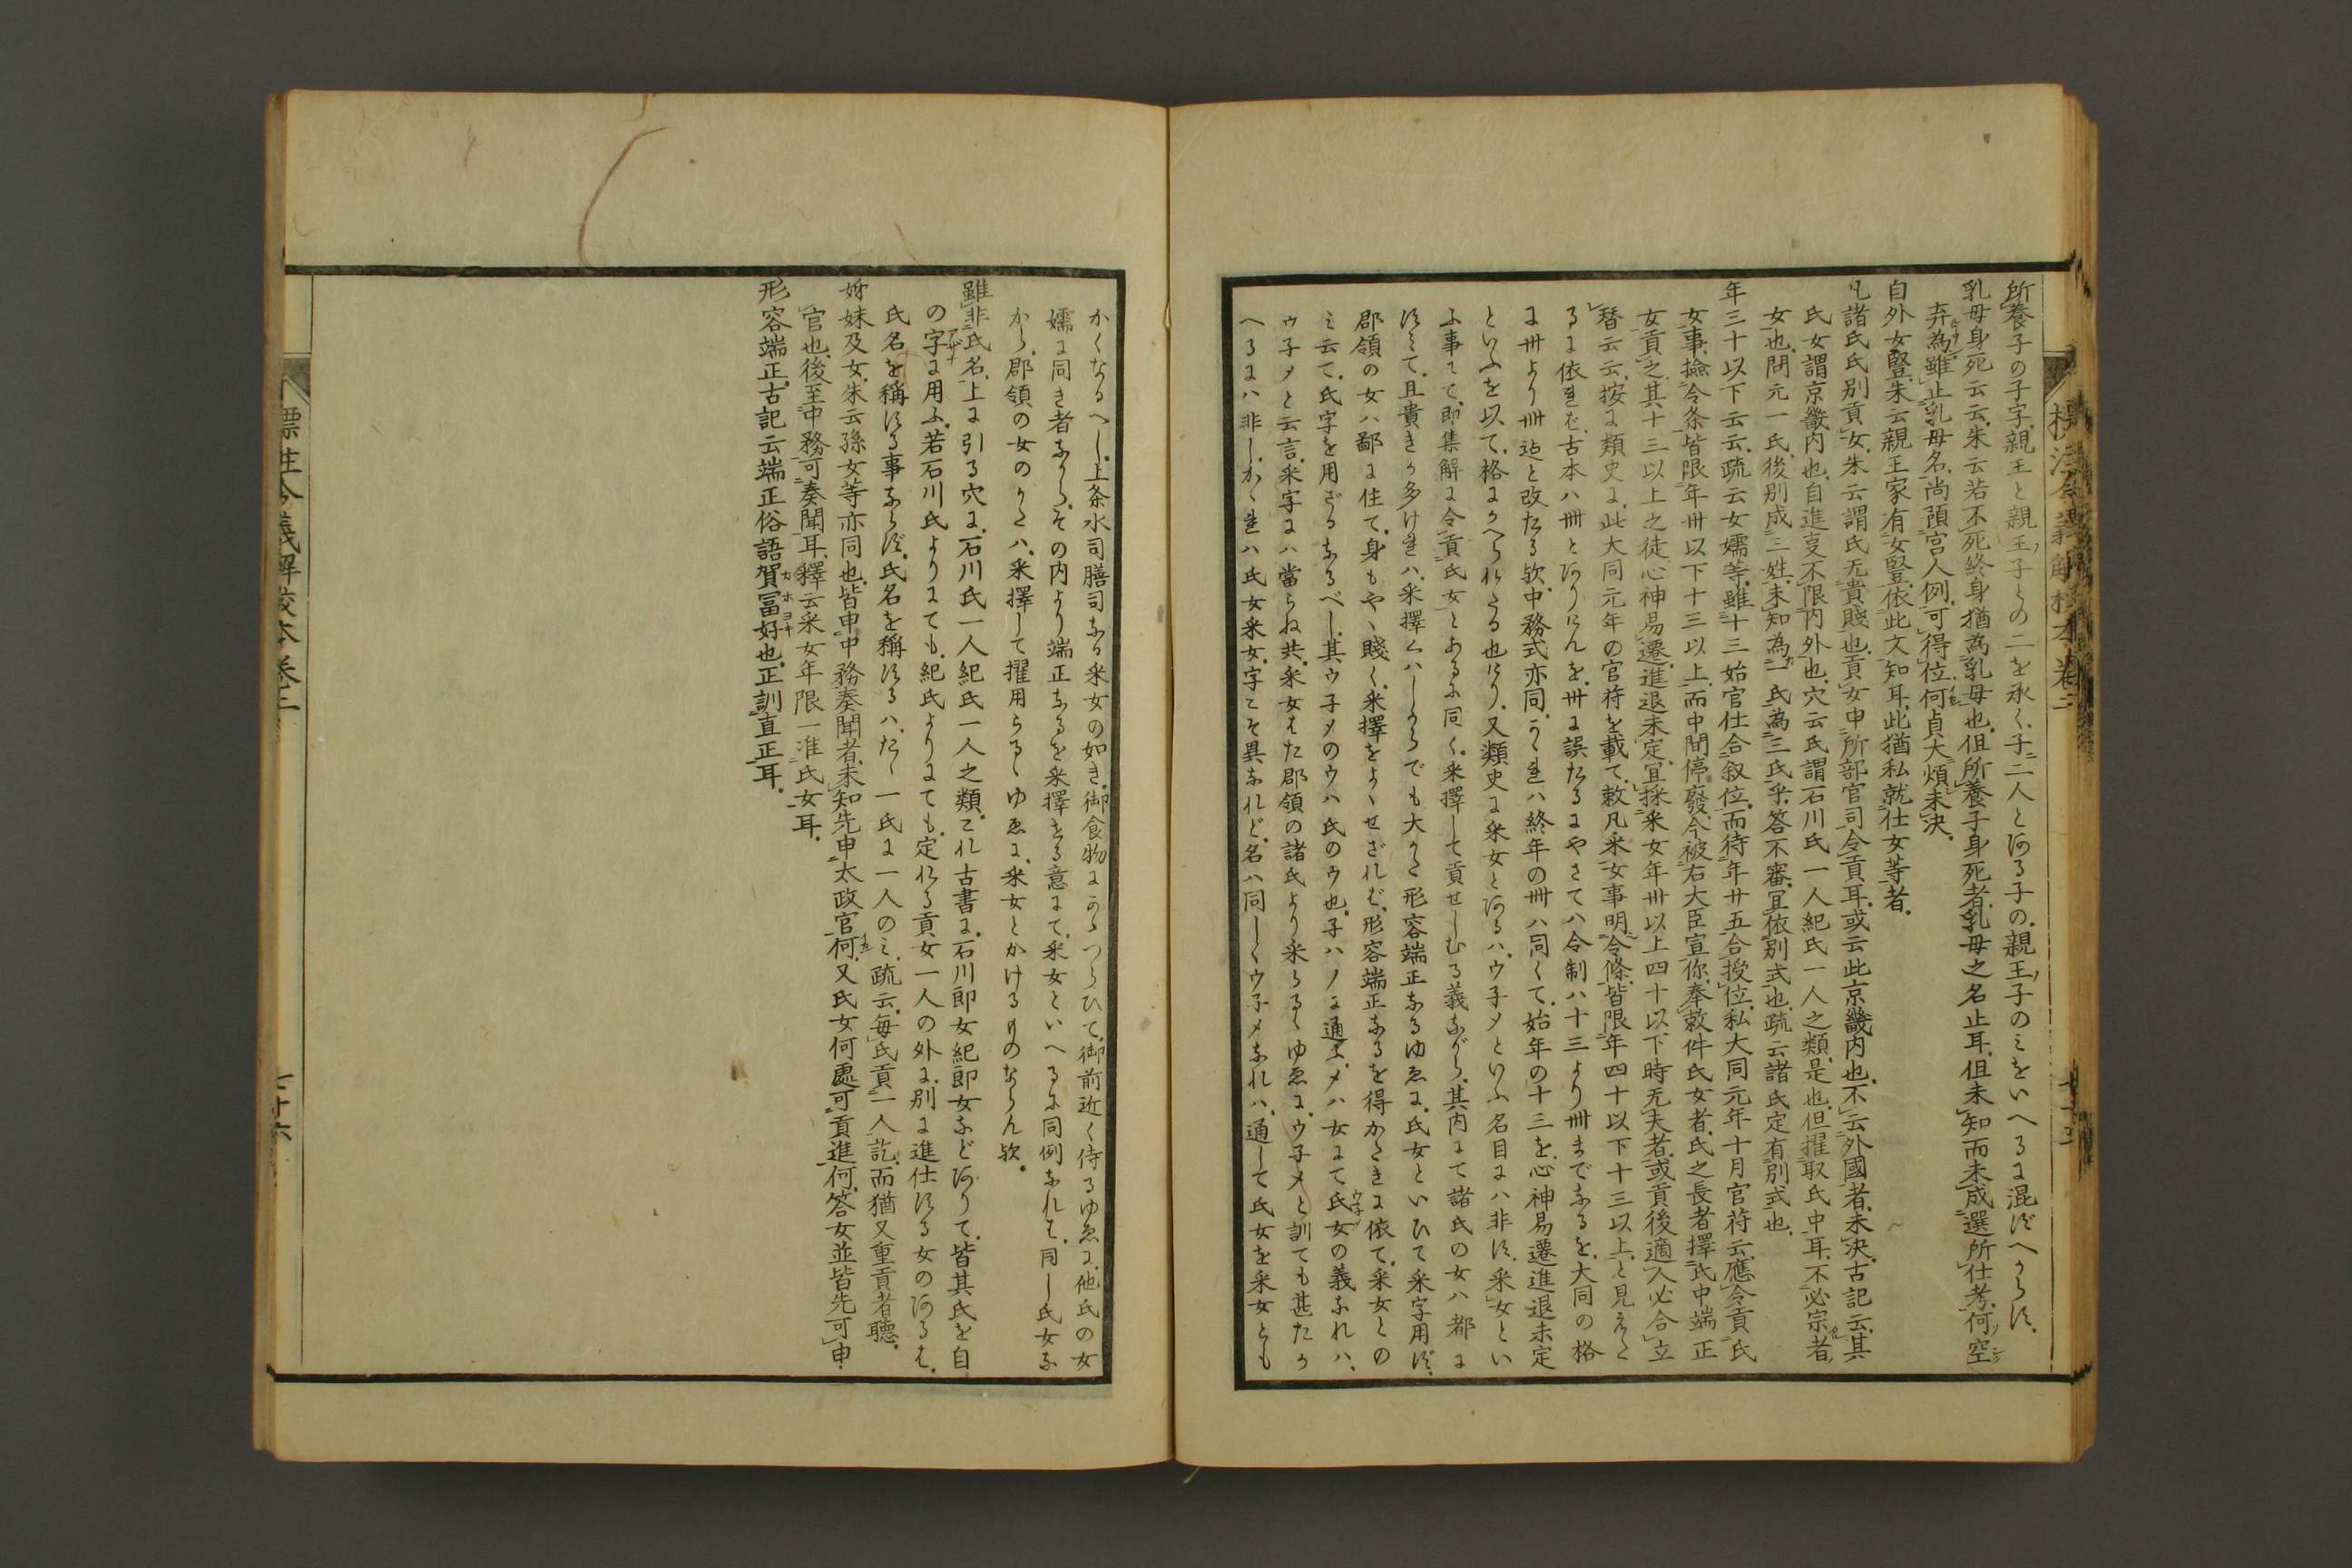 所養子の子字、親王と親王ノ子との二を承く、子二人とある子の、親王ノ子のミをいへるに混ずへからす、
乳母身死云云、朱云若不死終身猶為乳母也、但所養子身死者、乳母之名止耳、但未知而未成選所仕考、何、空
弃為雖止乳母名、尚預宮人例、可得位何、貞大煩未決、
自外女竪、朱云親王家有女竪、依此文知耳、此猶私就仕女等者、
凡諸氏氏別貢女、朱云謂氏无貴賤也、貢女申所部官司令貢耳、或云此京畿内也、不云外國者、未決、古記云、其
氏女謂京畿内也、自進支不限内外也、穴云氏謂石川氏一人紀氏一人之類、是也、但擢取氏中耳、不必宗者、
女也、問元一氏、後別成三姓、未知為一氏為三氏乎、答不審、冝依別式也、疏云諸氏定有別式也、
年三十以下云云、疏云女嬬等、雖十三始官仕合叙位、而待年廿五合授位、私大同元年十月官符云、應令貢氏
女事、撿令条、皆限年卅以下十三以上、而中間停廢、今被右大臣宣偁、奉敕件氏女者、氏之長者擇氏中端正
女貢之、其十三以上之徒、心神易遷、進退未定、冝採采女年卅以上四十以下時无夫者、或貢後適人必合立
替云云、按に類史に、此大同元年の官符を載て、敕凡采女事明令條、皆限年四十以下十三以上、と見えたる
るに依れば、古本ハ卌とありけんを、卅に誤たるにやさてハ令制ハ十三より卌までなるを、大同の格
に卅より卌迄と改たる歟、中務式亦同、かくれハ終年の卌ハ同くて、始年の十三を、心神易遷進退未定
といふを以て、格にかへられたる也けり、又類史に采女とあるハ、ウ子メといふ名目にハ非す、采女とい
ふ事にて、即集解に令貢氏女とあるに同く、采擇して貢せしむる義ながら、其内にて諸氏の女ハ都に
すミて、且貴きか多けれハ、采擇くハしからでも大かた形容端正なるゆゑに、氏女といひて采字用ず、
郡領の女ハ鄙に住て、身もやゝ賤く、采擇をよくせざれば、形容端正なるを得かたきに依て、采女との
ミ云て、氏字を用ざるなるべし、其ウ子メのウハ氏のウ也、子ハノに通ふ、メハ女にて氏女の義なれハ、
ウ子メと云言、采字にハ當らね共、采女はた郡領の諸氏より采らるゝゆゑに、ウ子メと訓ても甚たか
へるにハ非し、かくれハ氏女采女、字こそ異なれど、名ハ同しくウ子メなれハ、通して氏女を采女とも
かくなるへし、上条水司膳司なる采女の如き、御食物にあつらひて、御前近く侍るゆゑに、他氏の女
嬬に同き者ながら、その内より端正なるを采擇する意にて、采女といへるに同例なれは、同し氏女な
から、郡領の女のかたハ、采擇して擢用らるゝゆゑに、采女とかけるものならん歟、
雖非氏名、上に引る穴に、石川氏一人紀氏一人之類、これ古書に、石川郎女紀郎女などありて、皆其氏を自
の字に用ふ、若石川氏よりにても、紀氏よりにても、定れる貢女一人の外に、別に進仕する女のあるは、
氏名を稱する事ならず、氏名を稱するハ、たゝ一氏に一人のミ、疏云、毎氏貢一人訖、而猶又重貢者聽、
姉妹及女、朱云孫女等亦同也、皆申中務奏聞者、未知先申太政官何、又氏女何處可貢進何、答女並皆先可申
官也、後至中務可奏聞耳、釋云采女年限一准氏女耳、
形容端正、古記云端正俗語賀冨好也、正訓直正耳、
標註令義解校本巻二
二十六